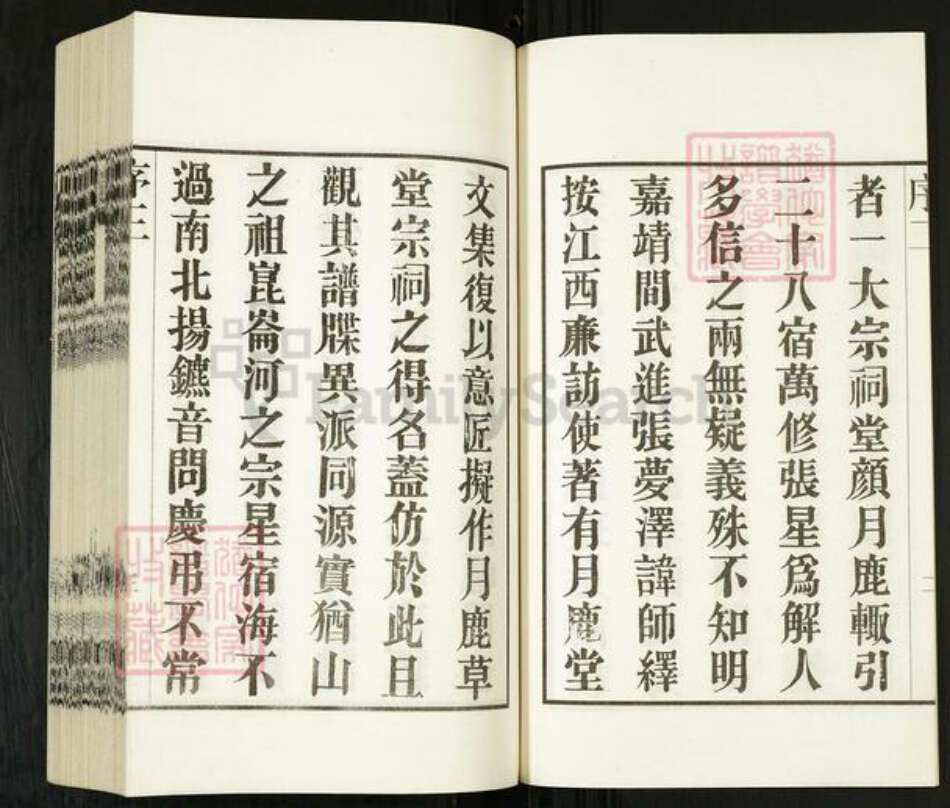 者一大宗祠堂顏月鹿輙引
二十八宿萬修張星爲解人
多信之兩無疑義殊不知明
嘉靖間武進張夢澤諱師繹
按江西廉訪使著有月鹿堂
文集復以意匠擬作月鹿草
堂宗祠之得名蓋仿於此且
觀其譜牒異派同源實猶山
之祖崑崙河之宗星宿海不
過南北揚鑣音問慶弔不常
序三
FamilySearch